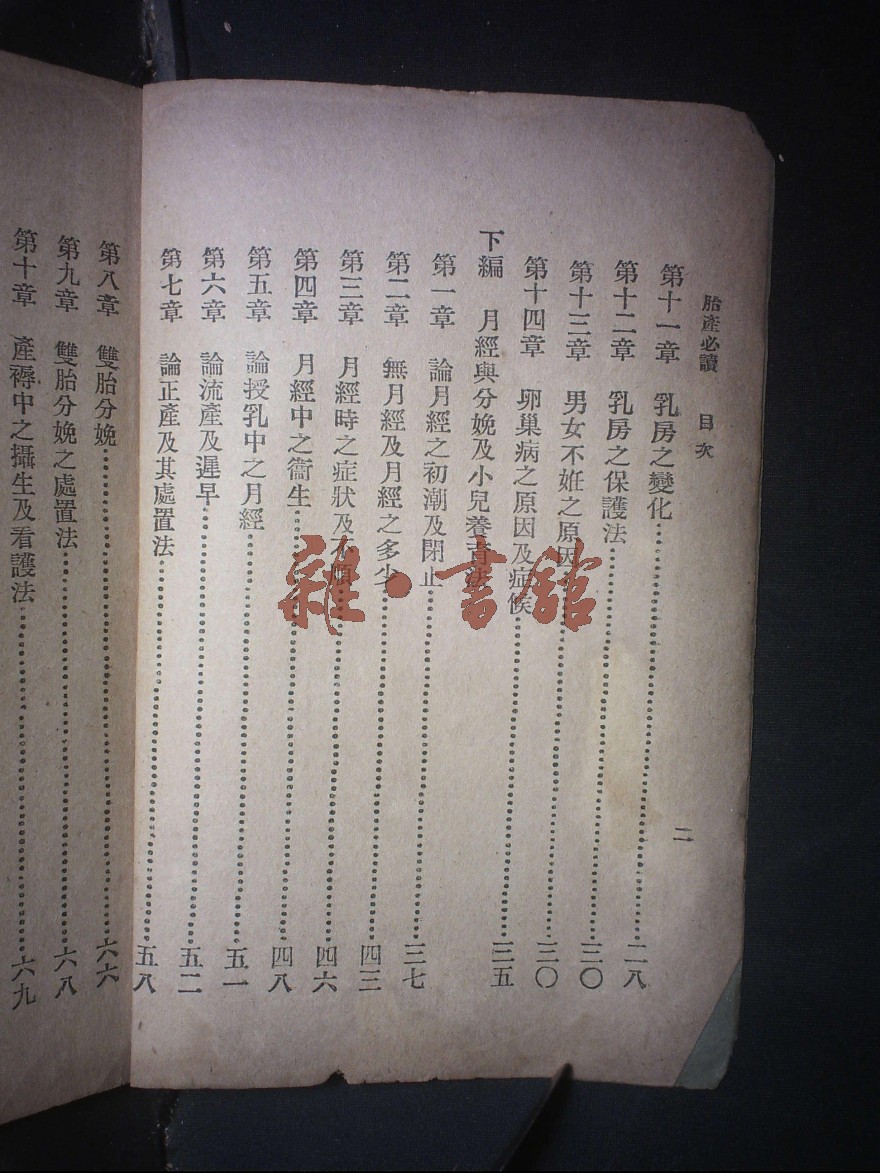 胎產必讀 目次 二
第十一章 乳房之變化 二八
第十二章 乳房之保護法 三〇
第十三章 男女不姙之原因 三〇
第十四章 卵巢病之原因及症候 三五
下編 月經與分娩及小兒養育法
第一章 論月經之初潮及閉止 三七
第二章 無月經及月經之多少 四三
第三章 月經時之症狀及不順 四六
第四章 月經中之衞生 四八
第五章 論授乳中之月經 五一
第六章 論流產及遲早 五二
第七章 論正產及其處置法 五八
第八章 雙胎分娩 六六
第九章 雙胎分娩之處置法 六八
第十章 產褥中之攝生及看護法 六九
雜·書館